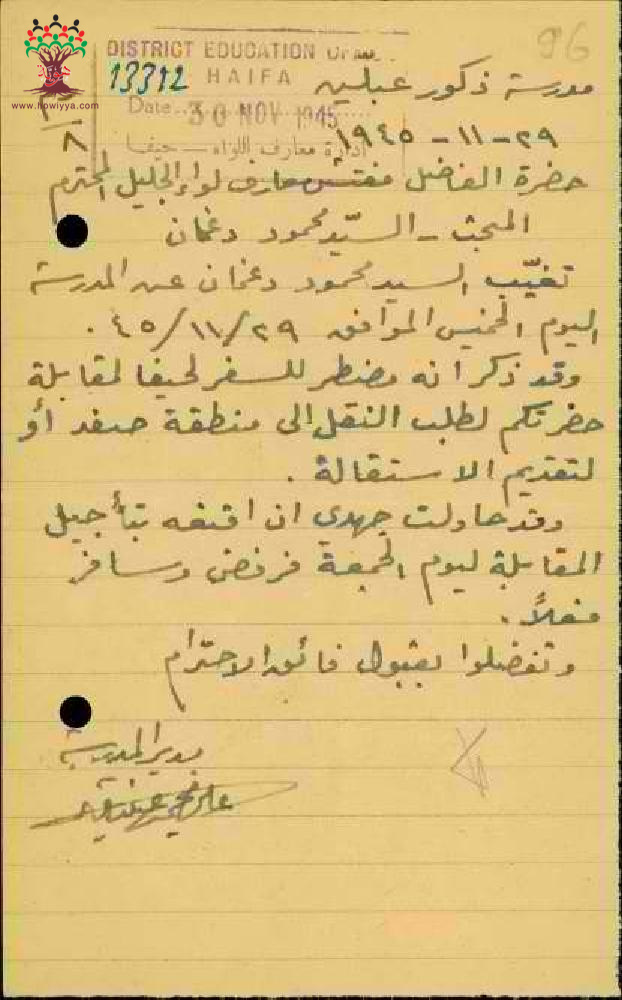 96
DISTRICT EDUCATION
13312 HAIFA
Date.. 30 NOV 1945
ادارة معارف اللواء - حيفا
www.howiyya.com
٨
مدرسة ذكور عبلين
٢٩-١١-١٩٤٥
حضرة الفاضل مفتش معارف لواء الجليل المحترم
المبحث - السيد محمود دغمان
تغيّب السيد محمود دغمان عن المدرسة
اليوم الخميس الموافق ٢٩/١١/٤٥.
وقد ذكر انه مضطر للسفر لحيفا لمقابلة
حضرتكم لطلب النقل الى منطقة صفد أو
لتقديم الاستقالة.
وقد حاولت جهدي ان اقنعه بتأجيل
المقابلة ليوم الجمعة فرفض وسافر
فعلاً.
وتفضلوا بقبول فائق الاحترام
مدير المدرسة